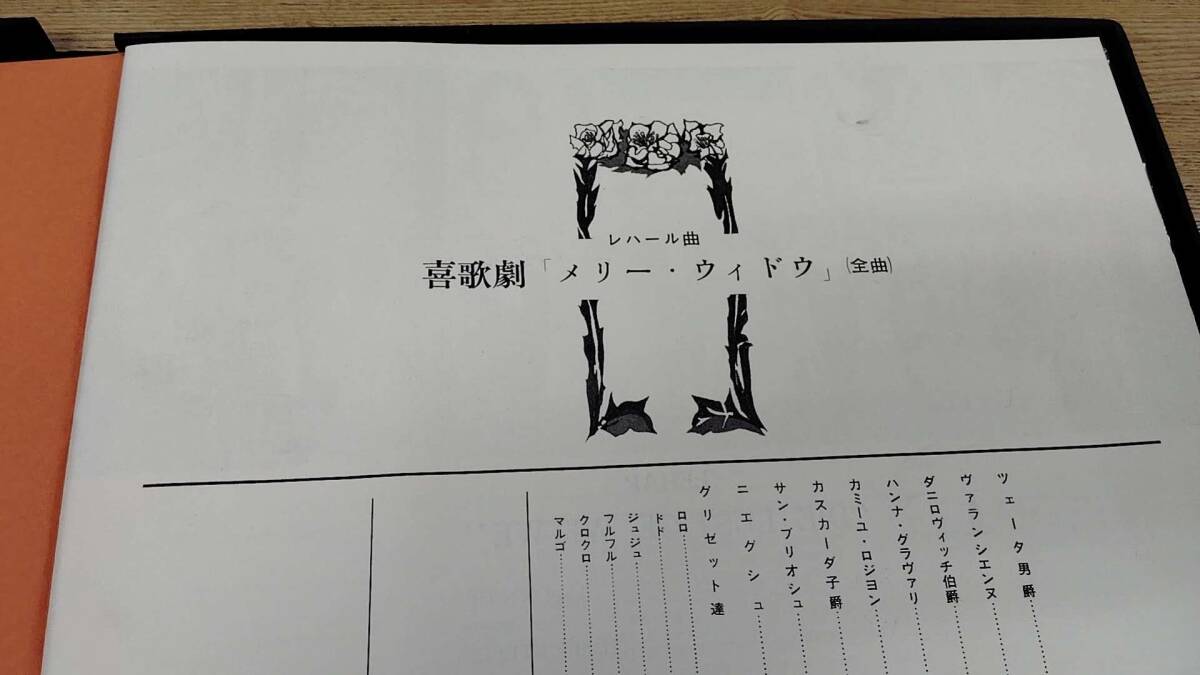 レハール曲
喜歌劇「メリー・ウィドウ」(全曲)
ツェータ男爵…………
ヴァランシエンヌ…………
ダニロヴィッチ伯爵…………
ハンナ・グラヴァリ…………
カミーユ・ロジヨン…………
カスカーダ子爵…………
サン・ブリオシュ…………
ニエグシュ…………
グリゼット達
ロロ…………
ドド…………
ジュジュ…………
フルフル…………
クロクロ…………
マルゴ…………